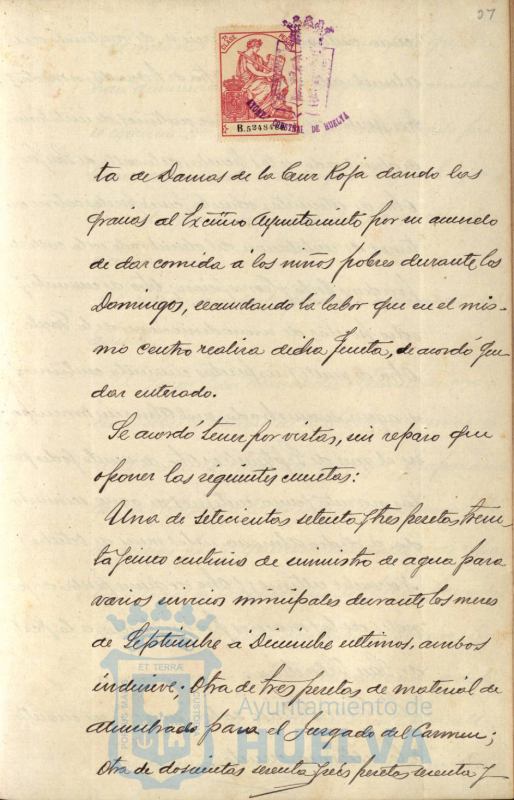 37
B.5248486
AYUNT. CONSTNAL DE HUELVA
ta de Damas de la Cruz Roja dando las
gracias al Excmo Ayuntamiento por su acuerdo
de dar comida a los niños pobres durante los
Domingos, secundando la labor que en el mis-
mo centro realiza dicha Junta, se acordó que
dar enterado.
Se acordó tener por vistas, sin reparo que
oponer las siguientes cuentas:
Una de setecientas setenta y tres pesetas trein-
ta y cinco centimos de suministro de agua para
varios servicios municipales durante los meses
de Septiembre a Diciembre ultimos, ambos
inclusive; Otra de tres pesetas de material de
alumbrado para el Juzgado del Carmen;
Otra de doscientas sesenta y seis pesetas sesenta y
ET TERRÆ
Ayuntamiento de
HUELVA